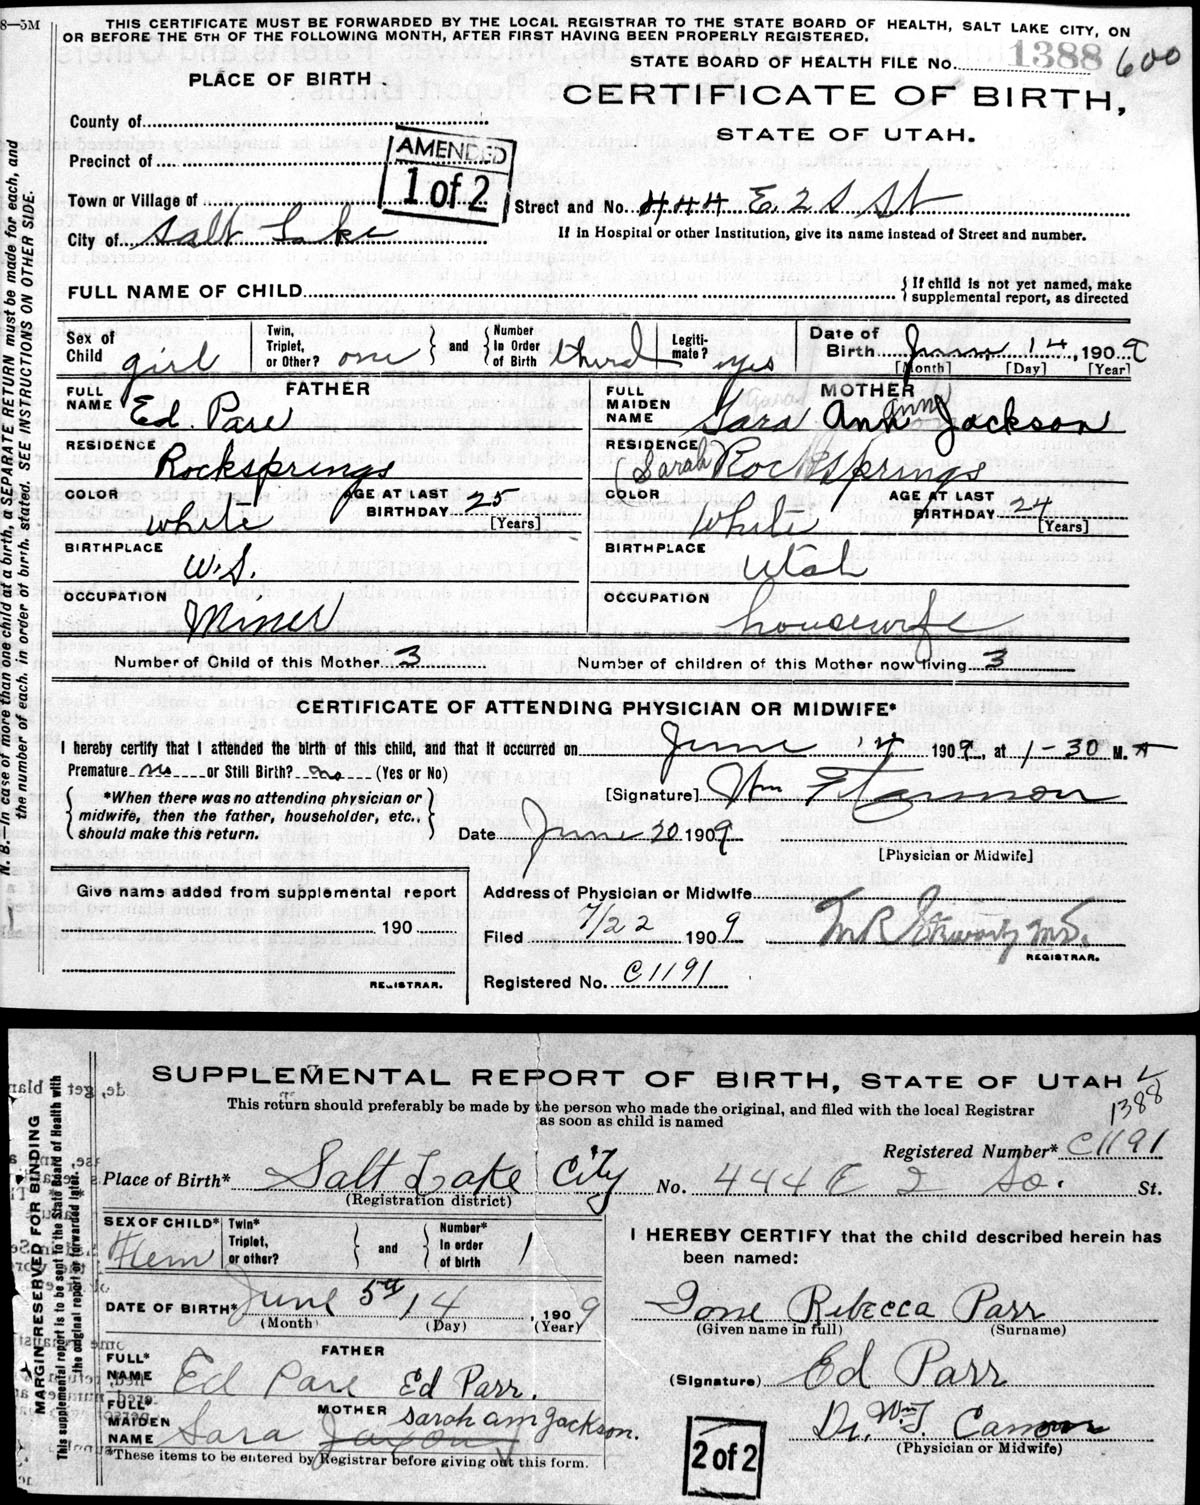 8—5M
THIS CERTIFICATE MUST BE FORWARDED BY THE LOCAL REGISTRAR TO THE STATE BOARD OF HEALTH, SALT LAKE CITY, ON
OR BEFORE THE 5TH OF THE FOLLOWING MONTH, AFTER FIRST HAVING BEEN PROPERLY REGISTERED.
STATE BOARD OF HEALTH FILE No. 1388 600
PLACE OF BIRTH
CERTIFICATE OF BIRTH,
STATE OF UTAH.
County of
Precinct of
AMENDED
1 of 2
Town or Village of
Street and No. 444 E. 2 S St
City of Salt Lake
If in Hospital or other Institution, give its name instead of Street and number.
FULL NAME OF CHILD
{ If child is not yet named, make
supplemental report, as directed
Sex of Child girl
Twin, Triplet, or Other? one
} and {
Number In Order of Birth third
Legiti- mate? yes
Date of Birth June 14, 1909
[Month] [Day] [Year]
FATHER
FULL NAME Ed. Pare
RESIDENCE Rocksprings
COLOR white
AGE AT LAST BIRTHDAY 25
[Years]
BIRTHPLACE W.S.
OCCUPATION Miner
MOTHER
FULL MAIDEN NAME Sara Ann Jackson
Ann
RESIDENCE Rocksprings
(Sarah
COLOR White
AGE AT LAST BIRTHDAY 24
[Years]
BIRTHPLACE Utah
OCCUPATION housewife
Number of Child of this Mother 3
Number of children of this Mother now living 3
CERTIFICATE OF ATTENDING PHYSICIAN OR MIDWIFE*
I hereby certify that I attended the birth of this child, and that it occurred on June 14 1909, at 1-30 M.
Premature no or Still Birth? no (Yes or No)
{ *When there was no attending physician or
midwife, then the father, householder, etc.,
should make this return. }
[Signature] Wm
Date June 20 1909
[Physician or Midwife]
Give name added from supplemental report
190
REGISTRAR.
Address of Physician or Midwife
Filed 7/22 1909
M R Stewart M.D.
REGISTRAR.
Registered No. C1191
N. B.—In case of more than one child at a birth, a SEPARATE RETURN must be made for each, and
the number of each, in order of birth, stated. SEE INSTRUCTIONS ON OTHER SIDE.
SUPPLEMENTAL REPORT OF BIRTH, STATE OF UTAH
1388
This return should preferably be made by the person who made the original, and filed with the local Registrar
as soon as child is named
Registered Number* C1191
Place of Birth* Salt Lake City No. 444 E 2 So. St.
(Registration district)
SEX OF CHILD* Fem
Twin* Triplet, or other?
} and {
Number* In order of birth 1
DATE OF BIRTH* June 5th 14, 1909
(Month) (Day) (Year)
FATHER
FULL* NAME Ed Pare Ed Parr.
MOTHER
FULL* MAIDEN NAME Sara Sarah ann Jackson.
*These items to be entered by Registrar before giving out this form.
I HEREBY CERTIFY that the child described herein has
been named:
Ione Rebecca Parr
(Given name in full) (Surname)
(Signature) Ed Parr
Dr. Wm T. Cannon
(Physician or Midwife)
2 of 2
MARGIN RESERVED FOR BINDING
This supplemental report is to be sent to the State Board of Health with
the original report or forwarded later.